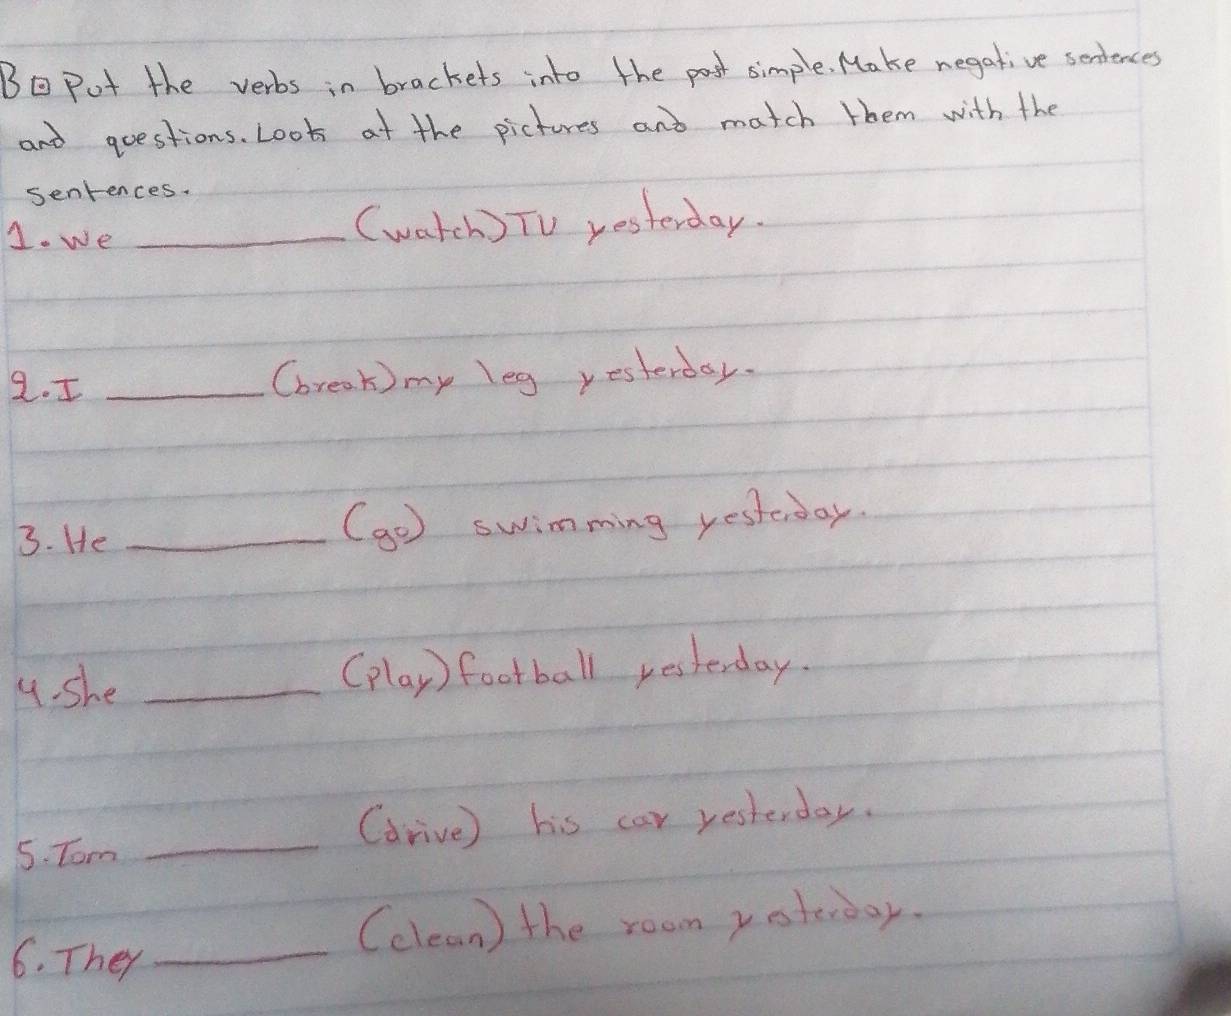 B⊡ Put the verbs in brackets into the past simple. Make negative sentences
and questions. Look at the pictures and match them with the
sentences.
1. We __________ (watch) TV yesterday.
2. I __________ (break) my leg yesterday.
3. He __________ (go) swimming yesterday.
4. She __________ (play) football yesterday.
5. Tom __________ (drive) his car yesterday.
6. They __________ (clean) the room yesterday.